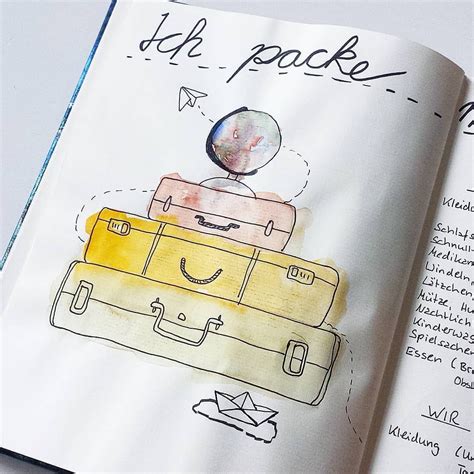 Ich packe
Kleidu
Schlafs
Schnull
Medikam
Windeln,
Lätzchen,
Mütze, Hu
Nachtlich
Kinderwas
Spielsachen
Essen (Br
Obs
WIR
Kleidung (U